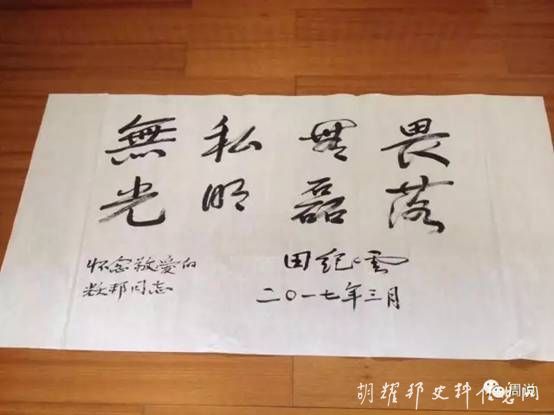 無私無畏
光明磊落
怀念敬爱的
耀邦同志
田纪雲
二〇一七年三月
周说
胡耀邦史料信息网